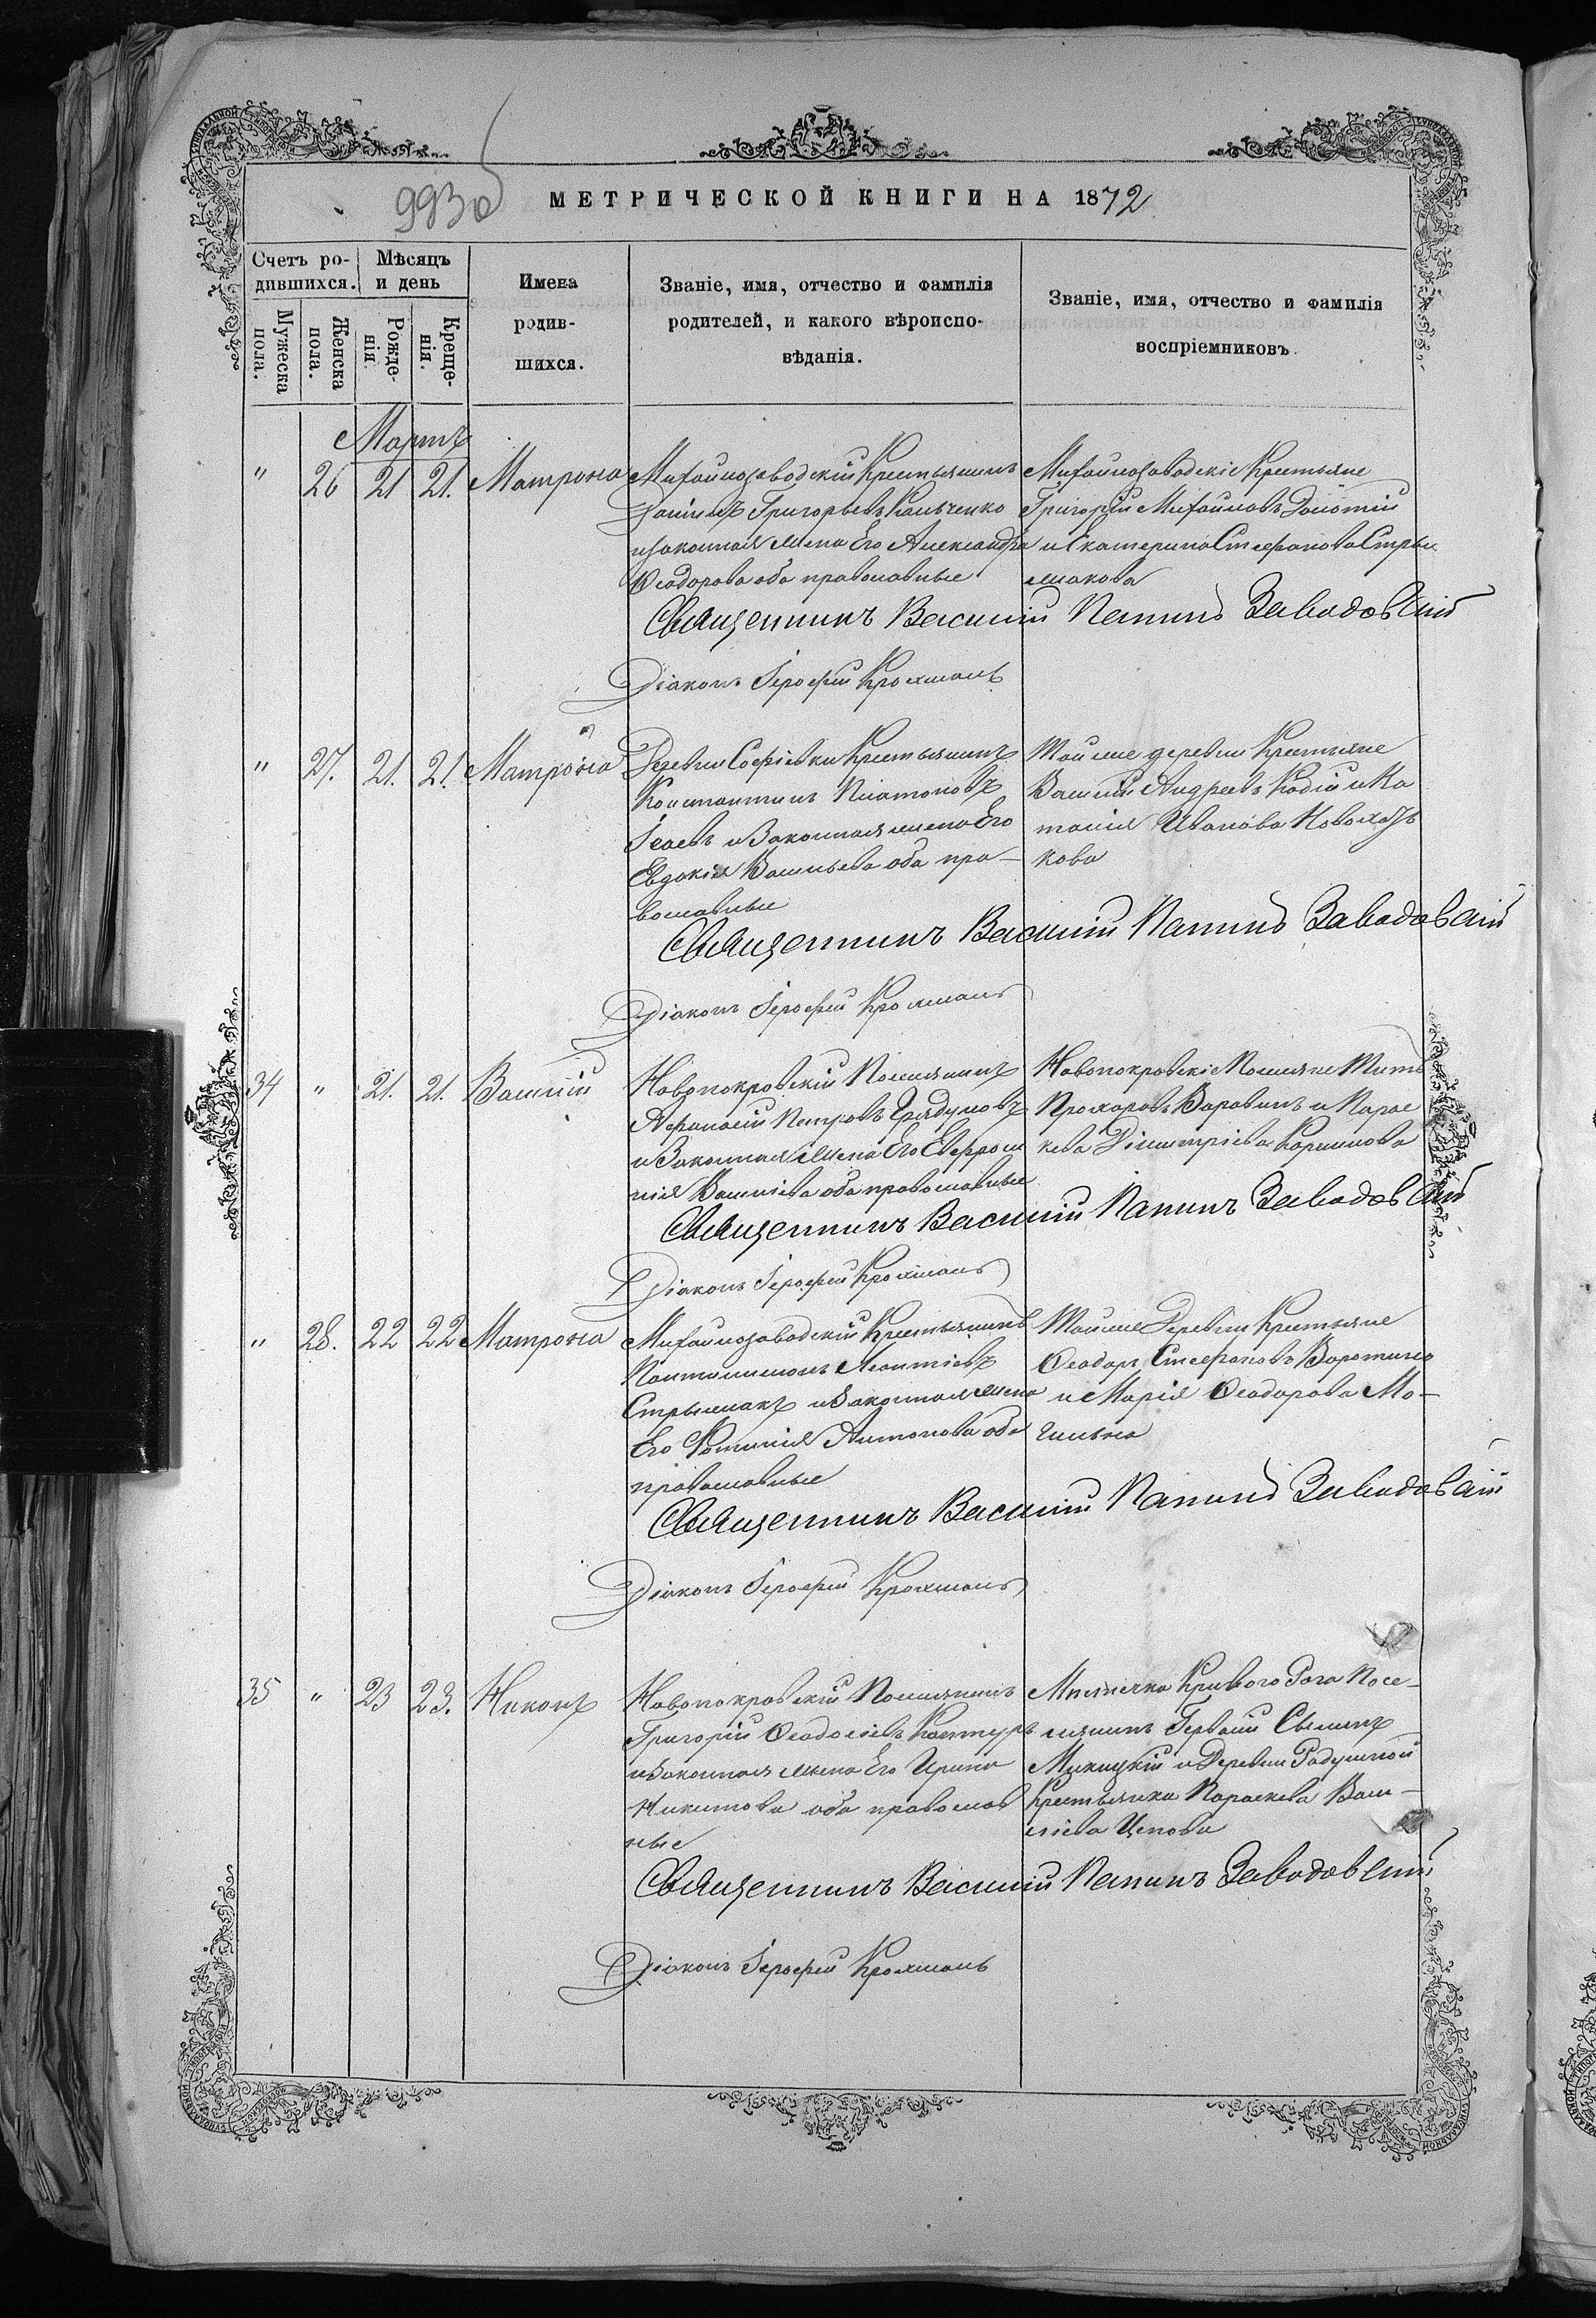 993 об
МЕТРИЧЕСКОЙ КНИГИ НА 1872
Счетъ ро-
дившихся.
Мѣсяцъ
и день
Мужеска
пола.
Женска
пола.
Рожде-
нія.
Креще-
нія.
Имена
родив-
шихся.
Званіе, имя, отчество и фамилія
родителей, и какого вѣроиспо-
вѣданія.
Званіе, имя, отчество и фамилія
воспріемниковъ.
Мартъ
" 26 21 21. Матрона
Михайлозаводскій Крестьянинъ
Григорьевъ Кольченко
и законная жена Его Александра
Ѳеодорова оба православные
Михайлозаводскіе Крестьяне
Григорій Михайловъ
и Екатерина Стефанова Стрыж
макова
Священникъ Василій Панинъ Заводовскій
Діаконъ Іероѳей Крохмаль
" 27. 21. 21. Матрона
Деревни Софіевки Крестьянинъ
Константинъ Платоновъ
Ісаевъ и Законная жена Его
Евдокія Васильева оба пра-
вославные
Той же деревни Крестьяне
Василій Андреевъ и На
талія Иванова
кова
Священникъ Василій Панинъ Заводовскій
Діаконъ Іероѳей Крохмаль
34 " 21. 21. Василій
Новопокровскій Поселянинъ
Афанасій Петровъ
и Законная жена Его Евфроси
нія Василіева оба православные
Новопокровскіе Поселяне Титъ
Прохоровъ и Парас
кева Димитріева
Священникъ Василій Панинъ Заводовскій
Діаконъ Іероѳей Крохмаль
" 28. 22 22 Матрона
Михайлозаводскій Крестьянинъ
Пантелимонъ Леонтіевъ
Стрыжакъ и Законная жена
Его Фотинія Антонова оба
православные
Той же Деревни Крестьяне
Ѳеодоръ Стефановъ
и Марія Ѳеодорова Мо-
гильна
Священникъ Василій Панинъ Заводовскій
Діаконъ Іероѳей Крохмаль
35 " 23 23. Никонъ
Новопокровскій Поселянинъ
Григорій Ѳеодосіевъ Кастуръ
и Законная жена Его Ирина
Никитова оба православ
ные
Мѣстечка Криваго Рога Посе-
лянинъ
и Деревни Радушной
Крестьянка Параскева Васи-
ліева Цепова
Священникъ Василій Панинъ Заводовскій
Діаконъ Іероѳей Крохмаль